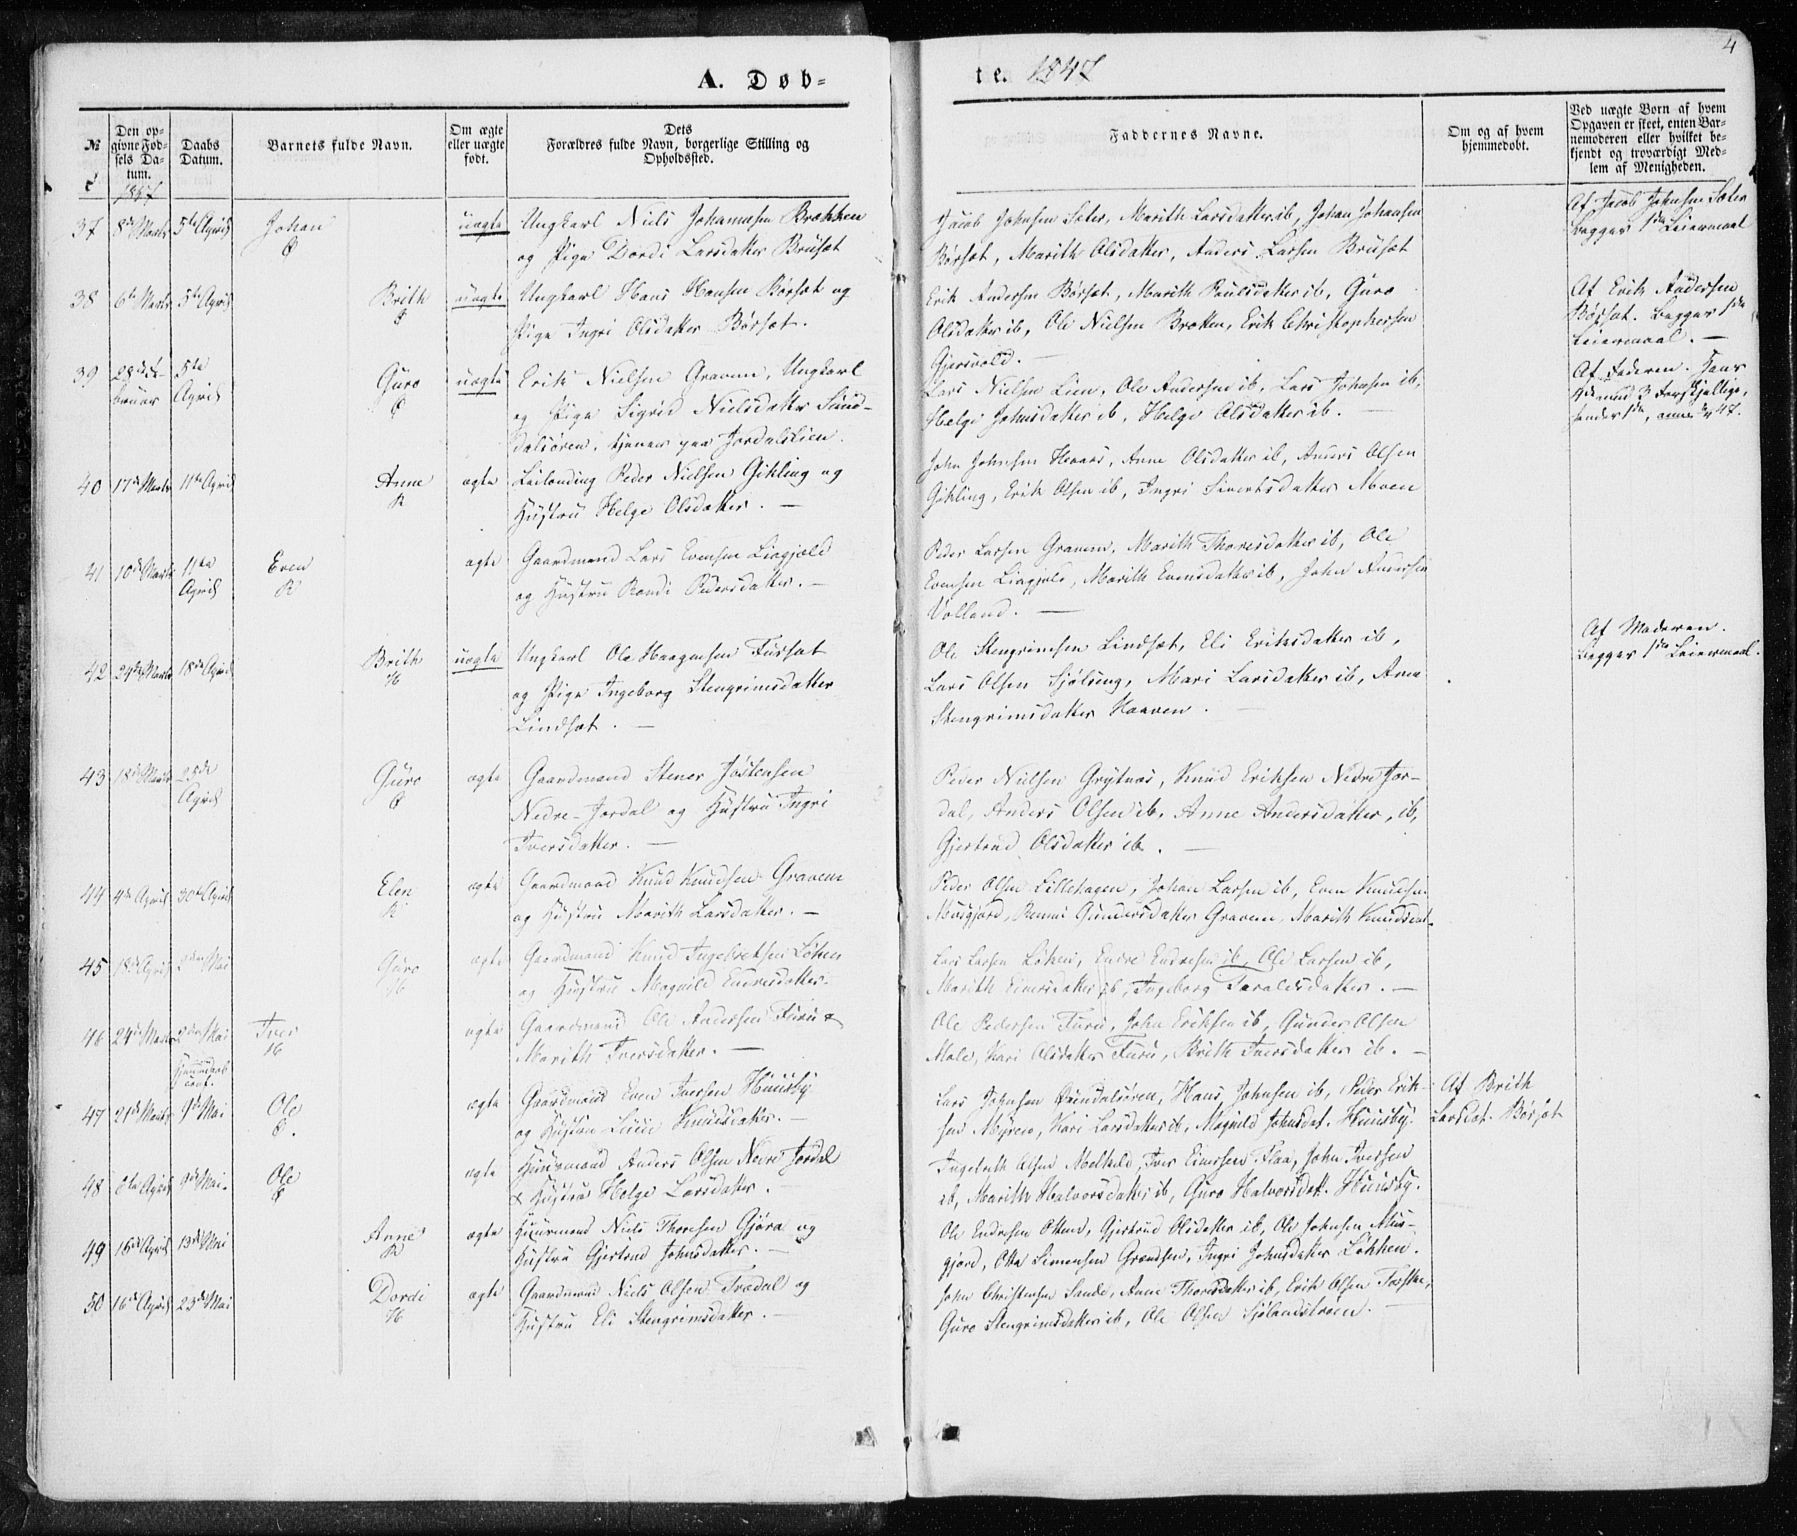 A. Døb-
te. 1847
4
№
Den op-
givne Fød-
sels Da-
tum.
1847
Daabs
Datum.
Barnets fulde Navn.
Om ægte
eller uægte
født.
Dets
Forældres fulde Navn, borgerlige Stilling og
Opholdssted.
Faddernes Navne.
Om og af hvem
hjemmedøbt.
Ved uægte Børn af hvem
Opgaven er skeet, enten Bar-
nemoderen eller hvilket be-
kjendt og troværdigt Med-
lem af Menigheden.
37 8de Marts 5te April Johan uægte Ungkarl Niels Johannesen Brækken
og Pige Dordi Larsdatter Brusæt
Jacob Johnsen Seter, Marith Larsdatter ib, Johan Johansen
Børsæt, Marith Olsdatter, Anders Larsen Brusæt
Af Jacob Johnsen Sæter
Begges 1ste Leiermaal
38 6te Marts 5te April Brith uægte Ungkarl Hans Hansen Børsæt og
Pige Ingri Olsdatter Børsæt.
Erik Andersen Børsæt, Marith Paulsdatter ib, Guro
Olsdatter ib, Ole Nielsen Bretten, Erik Christophersen
Gjersvold. —
Af Erik Andersen
Børsæt. Begges 1ste
Leiermaal. —
39 5te
April Guro uægte Erik Nielsen Gravem, Ungkarl
og Pige Sigrid Nielsdatter Sund-
dalsøren, tjener paa Jordalslien.
Lars Nielsen Lien, Ole Andersen ib, Lars Johnsen ib,
Helge Johnsdatter ib, Helge Olsdatter ib. —
Af Faderen. Hans
40 17de Marts 11te April Anne ægte Leilending Peder Nielsen Gikling og
Hustru Helge Olsdatter. —
John Johnsen Hevaas, Anne Olsdatter ib, Anders Olsen
Gikling, Erik Olsen ib, Ingri Sivertsdatter Moen
41 10de Marts 11te
April Even ægte Gaardmand Lars Evensen Liagjeld
og Hustru Randi Pedersdatter. —
Peder Larsen Gravem, Marith Thoresdatter ib, Ole
Evensen Liagjeld, Marith Evensdatter ib, John Andersen
Volland. —
42 24de Marts 18de April Brith uægte Ungkarl Ole Haagensen Fursæt
og Pige Ingeborg Stengrimsdatter
Lindsæt. —
Ole Stengrimsen Lindsæt, Eli Eriksdatter ib,
Lars Olsen Sjølseng, Mari Larsdatter ib, Anne
Stengrimsdatter Haaven. —
Af Moderen.
Begges 1ste Leiermaal.
43 18de Marts 25de
April Guro ægte Gaardmand Stener Jostensen
Nedre-Jordal og Hustru Ingri
Iversdatter. —
Peder Nielsen Grytnes, Knud Eriksen Nedre Jor-
dal, Anders Olsen ib, Anne Andersdatter, ib,
Gjertrud Olsdatter ib. —
44 4de April 30te April Elen ægte Gaardmand Knud Knudsen Gravem
og Hustru Marith Larsdatter. —
Peder Olsen Lillehagen, Johan Larsen ib, Even Knudsen
Musgjerd, Gundersdatter Gravem, Marith Knudsdat.
45 18de April 2den Mai Guro ægte Gaardmand Knud Ingebretsen Løken
og Hustru Magnild Endresdatter.
Lars Larsen Løken, Endre Endresen ib, Ole Larsen ib,
Marith Einersdatter ib, Ingeborg Taraldsdatter. —
46 24de Marts 2den Mai Iver ægte Gaardmand Ole Andersen Furu &
Marith Iversdatter. —
Ole Pedersen Furu, John Eriksen ib, Gunder Olsen
Mele, Kari Olsdatter Furu, Brith Iversdatter ib. —
47 21de Marts 9de Mai Ole ægte Gaardmand Even Iversen Huusby
og Hustru Knudsdatter. —
Lars Johnsen Sundalsøren, Hans Johnsen ib, Peder Erik-
sen Myren, Kari Larsdatter ib, Magnild Johnsdat. Huusby.
Af Brith
Larsdat. Børsæt
48 8de April 9de Mai. Ole ægte Huusmand Anders Olsen Nedre Jordal
& Hustru Helge Larsdatter. —
Ingebreth Olsen Melkild, Iver Einersen Flaa, John Iversen
ib, Marith Halvorsdatter ib, Guro Halvorsdatt. Huusby.
49 16de April 13de Mai Anne ægte Huusmand Niels Thoresen Gjøra og
Hustru Gjertrud Johnsdatter. —
Ole Endresen Ottem, Gjertrud Olsdatter ib, Ole Johnsen Mus-
gjerd, Otta Simensen Grendsen, Ingri Johnsdatter Løkken.
50 16de April 23de Mai Dordi ægte Gaardmand Niels Olsen Trædal og
Hustru Eli Stengrimsdatter. —
John Christensen Sande, Anne Thoresdatter ib, Erik Olsen Forsthe,
Guro Stengrimsdatter ib, Ole Olsen Sjølandstrøen. —